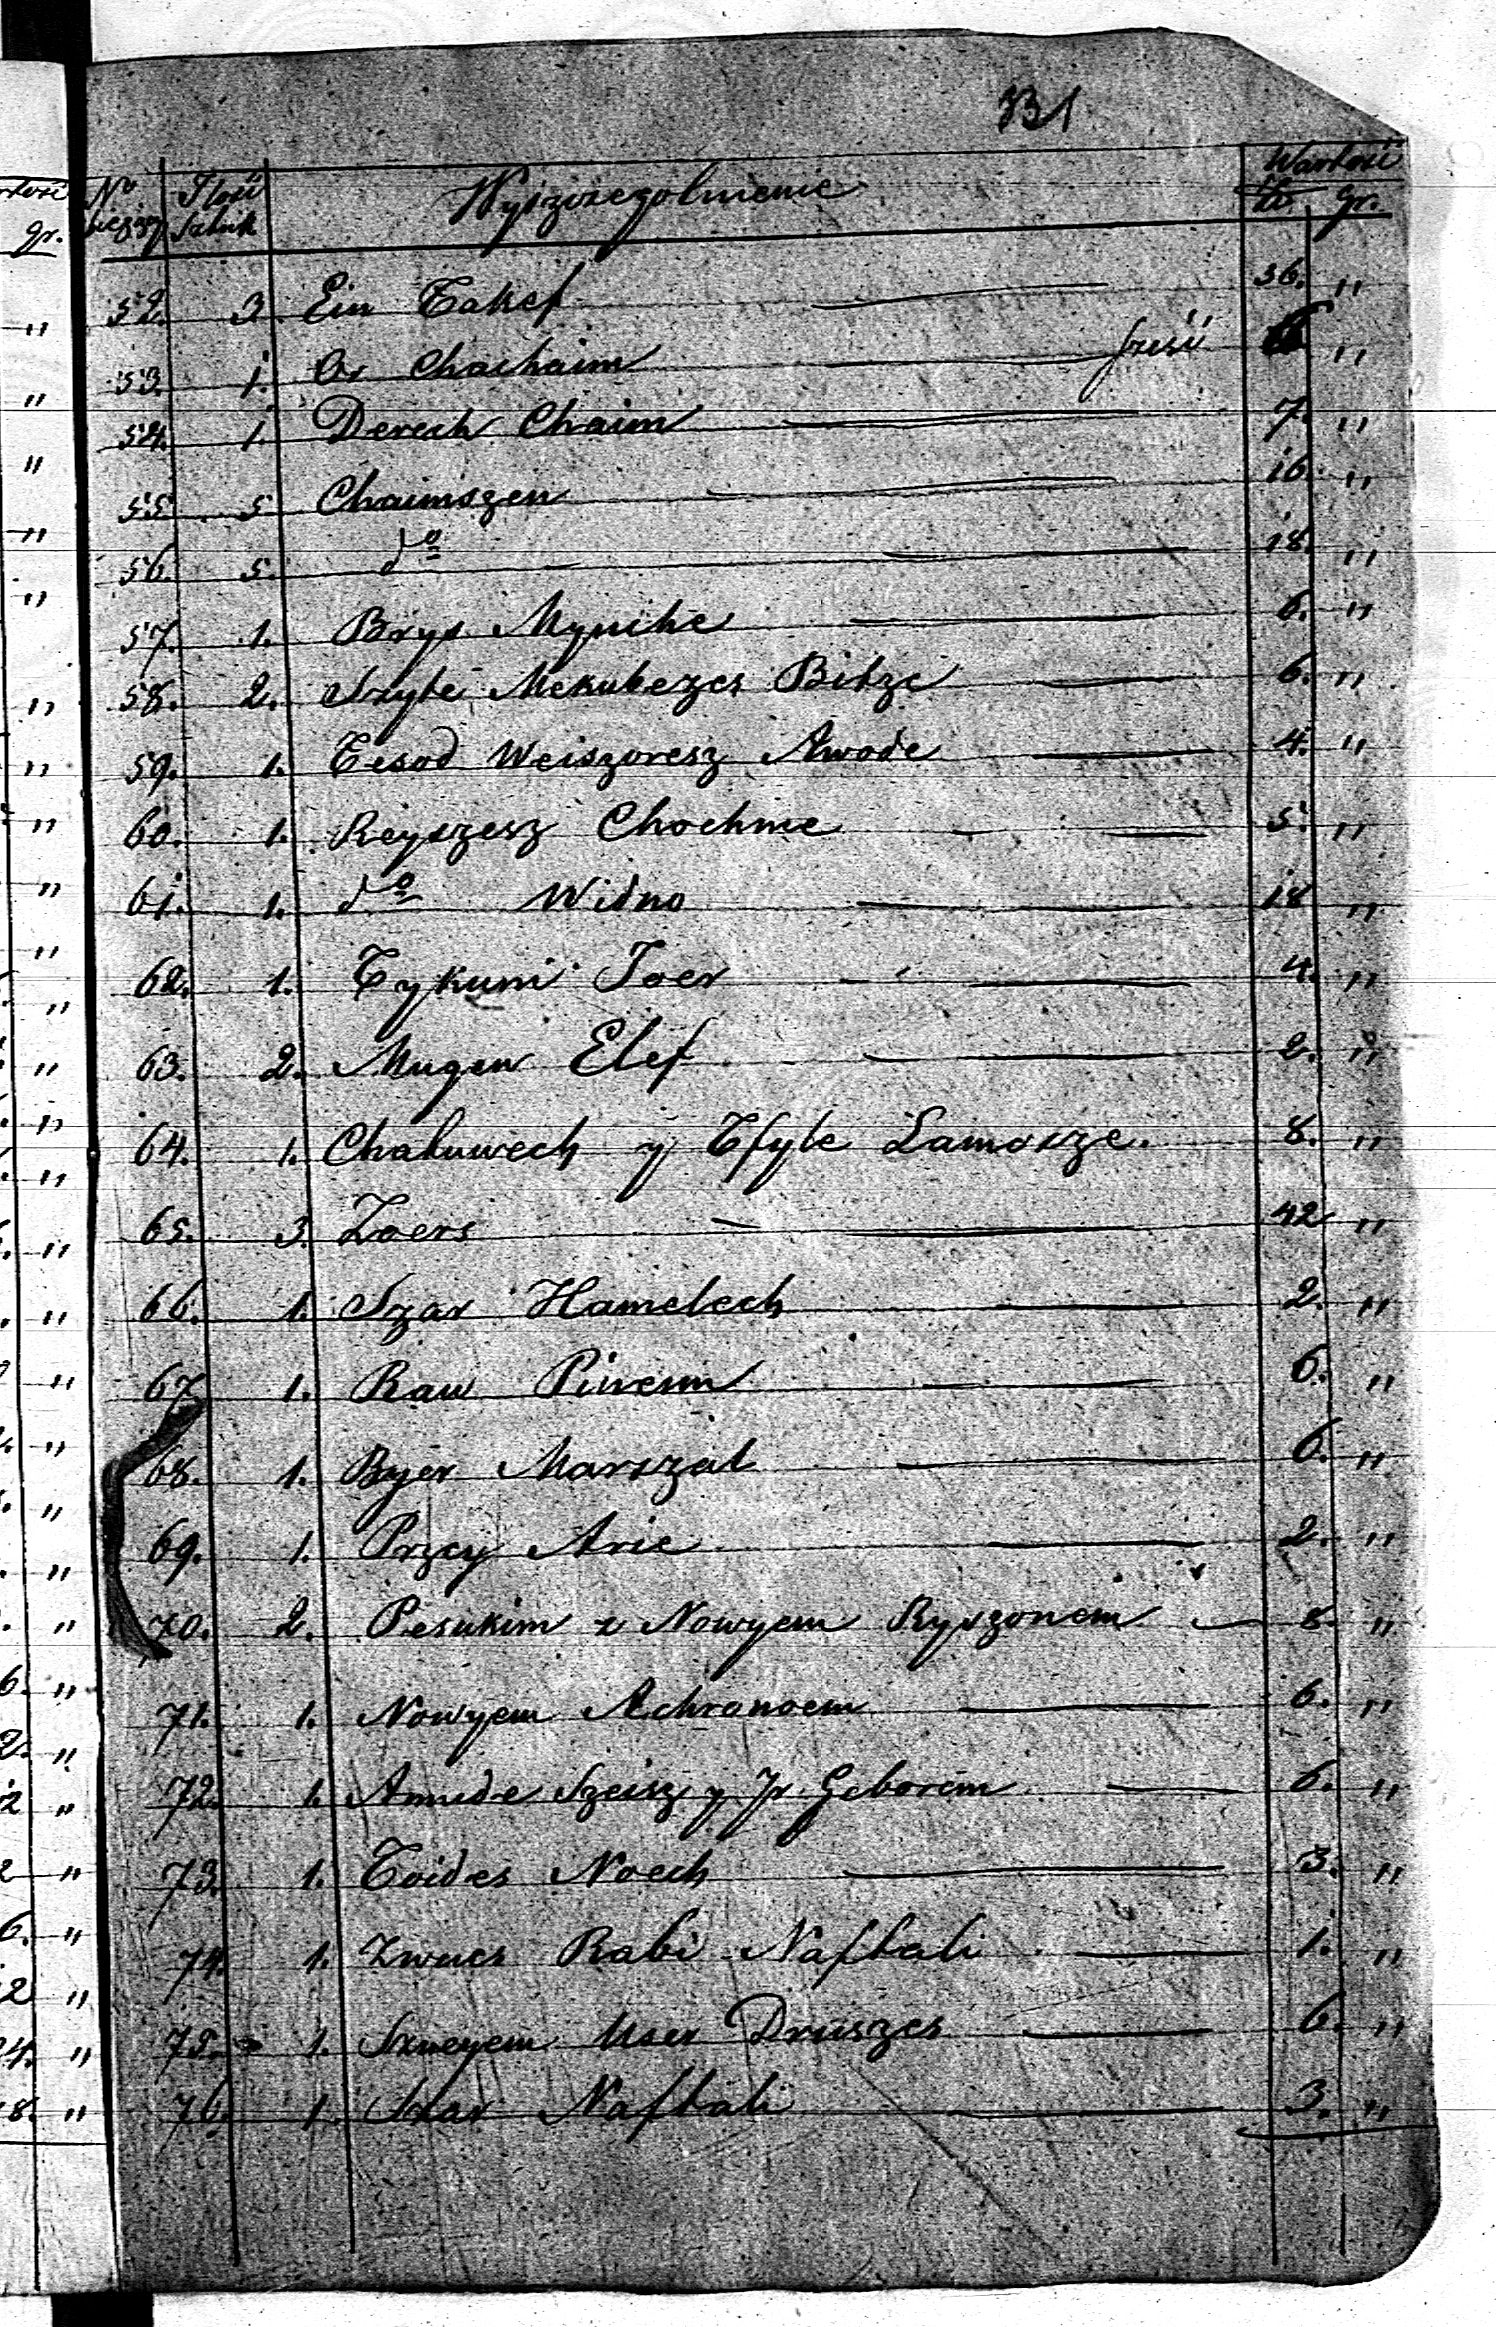 131
N° Ilość Wyszczegolnienie Wartość
bieżący Sztuk Zł. gr.
52. 3 Ein Takef 36. "
53. 1. Or Chachaim sześć 6 "
54. 1. Derech Chaim 7. "
55 5 Chaimszen 16. "
56. 5. do 18. "
57. 1. Brys Mynche 6. "
58. 2. Szyte Mekubezes Bitze 6. "
59. 1. Tesod Weiszoresz Awode 4. "
60. 1. Reyszesz Chochme 5. "
61. 1. do Widno 18 "
62. 1. Tykuni Zoer 4. "
63. 2. Mugen Elef 2. "
64. 1. Chakuwech y Tfyle Lamosze. 8. "
65. 3. Zoers 42 "
66. 1. Szar Hamelech 2. "
67 1. Raw Pinenm 6. "
68. 1. Byer Marszal 6. "
69. 1. Przcy Arie 2. "
70. 2. Pesukim z Nowyem Ryszonem 8. "
71. 1. Nowyem Achronoem 6. "
72. 1. Amude Szeisz y Jr. Geborem 6. "
73. 1. Toides Noech 3. "
74. 1. Zwues Rabi Naftali 1. "
75. 1. Szneyem User Druszes 6. "
76. 1. Szar Naftali 3. "